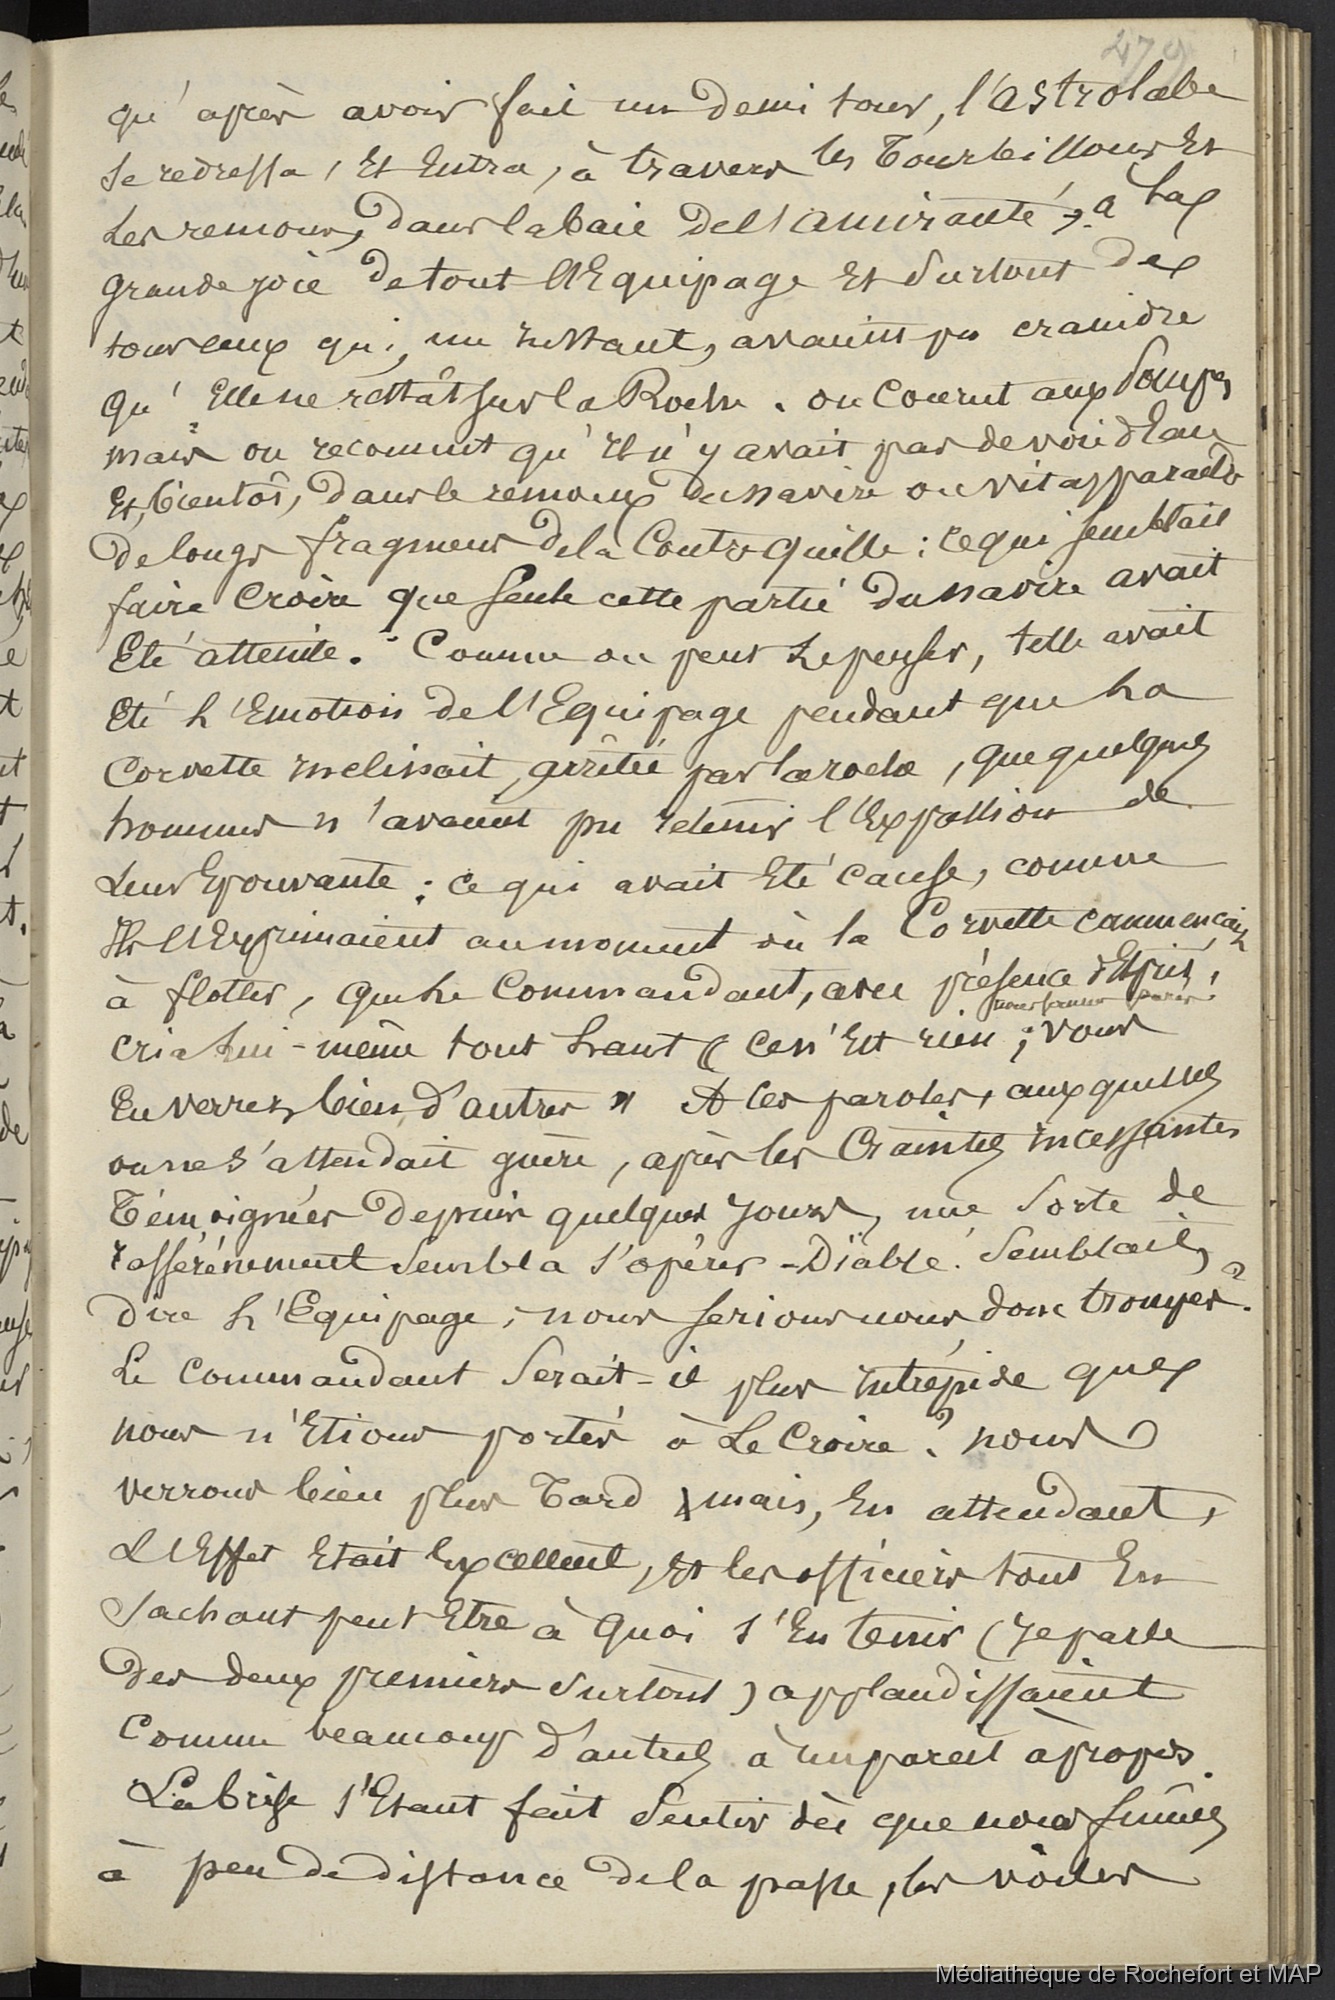 479
qu'après avoir fait un demi tour, l'astrolabe
se redressa, Et Entra, à travers les Tourbillons Et
Les remous, dans la baie De l'amirauté, à La
grande joie De tout l'Equipage Et Surtout de
tous ceux qui, un instant, avaient pu craindre
qu'Elle ne restât sur la Roche. on courut aux Pompes
mais on reconnut qu'il n'y avait pas de voie d'Eau
Et, bientôt, Dans le remoux du navire on vit apparaitre
De longs fragmens De la Contre quille : ce qui semblait
faire Croire que seule cette partie Du navire avait
Eté atteinte. Comme on peut Le penser, telle avait
Eté L'Emotion De l'Equipage pendant que La
Corvette inclinait, arrêtée par la roche, que quelques
hommes n'avaient pu retenir l'Expression de
Leur Epouvante ; ce qui avait Eté cause, comme
Ils l'Exprimaient au moment où la Corvette commençait
à flotter, que Le Commandant, avec présence d'Esprit,
nous sommes parés !
cria Lui-même tout haut « ce n'Est rien ; vous
En verrez bien d'autres » A ces paroles, auxquelles
on ne s'attendait guère, après les Craintes incessantes
Témoignées Depuis quelques jours, une Sorte de
rassérénement Sembla s'opérer - Diable ! Semblait
dire L'Equipage, nous serions nous donc trompés ?
Le Commandant Serait-il plus intrépide que
nous n'Etions portés à Le Croire ? nous
verrons bien plus Tard ; mais, En attendant,
L'Effet Etait Excellent, Et les officiers tout En
Sachant peut Etre à Quoi s'En tenir (je parle
Des deux premiers Surtout) applaudissaient
Comme beaucoup d'autres à un pareil àpropos.
La brise s'Etant fait Sentir dès que nous fûmes
à peu De distance De la passe, les voiles
Médiathèque de Rochefort et MAP